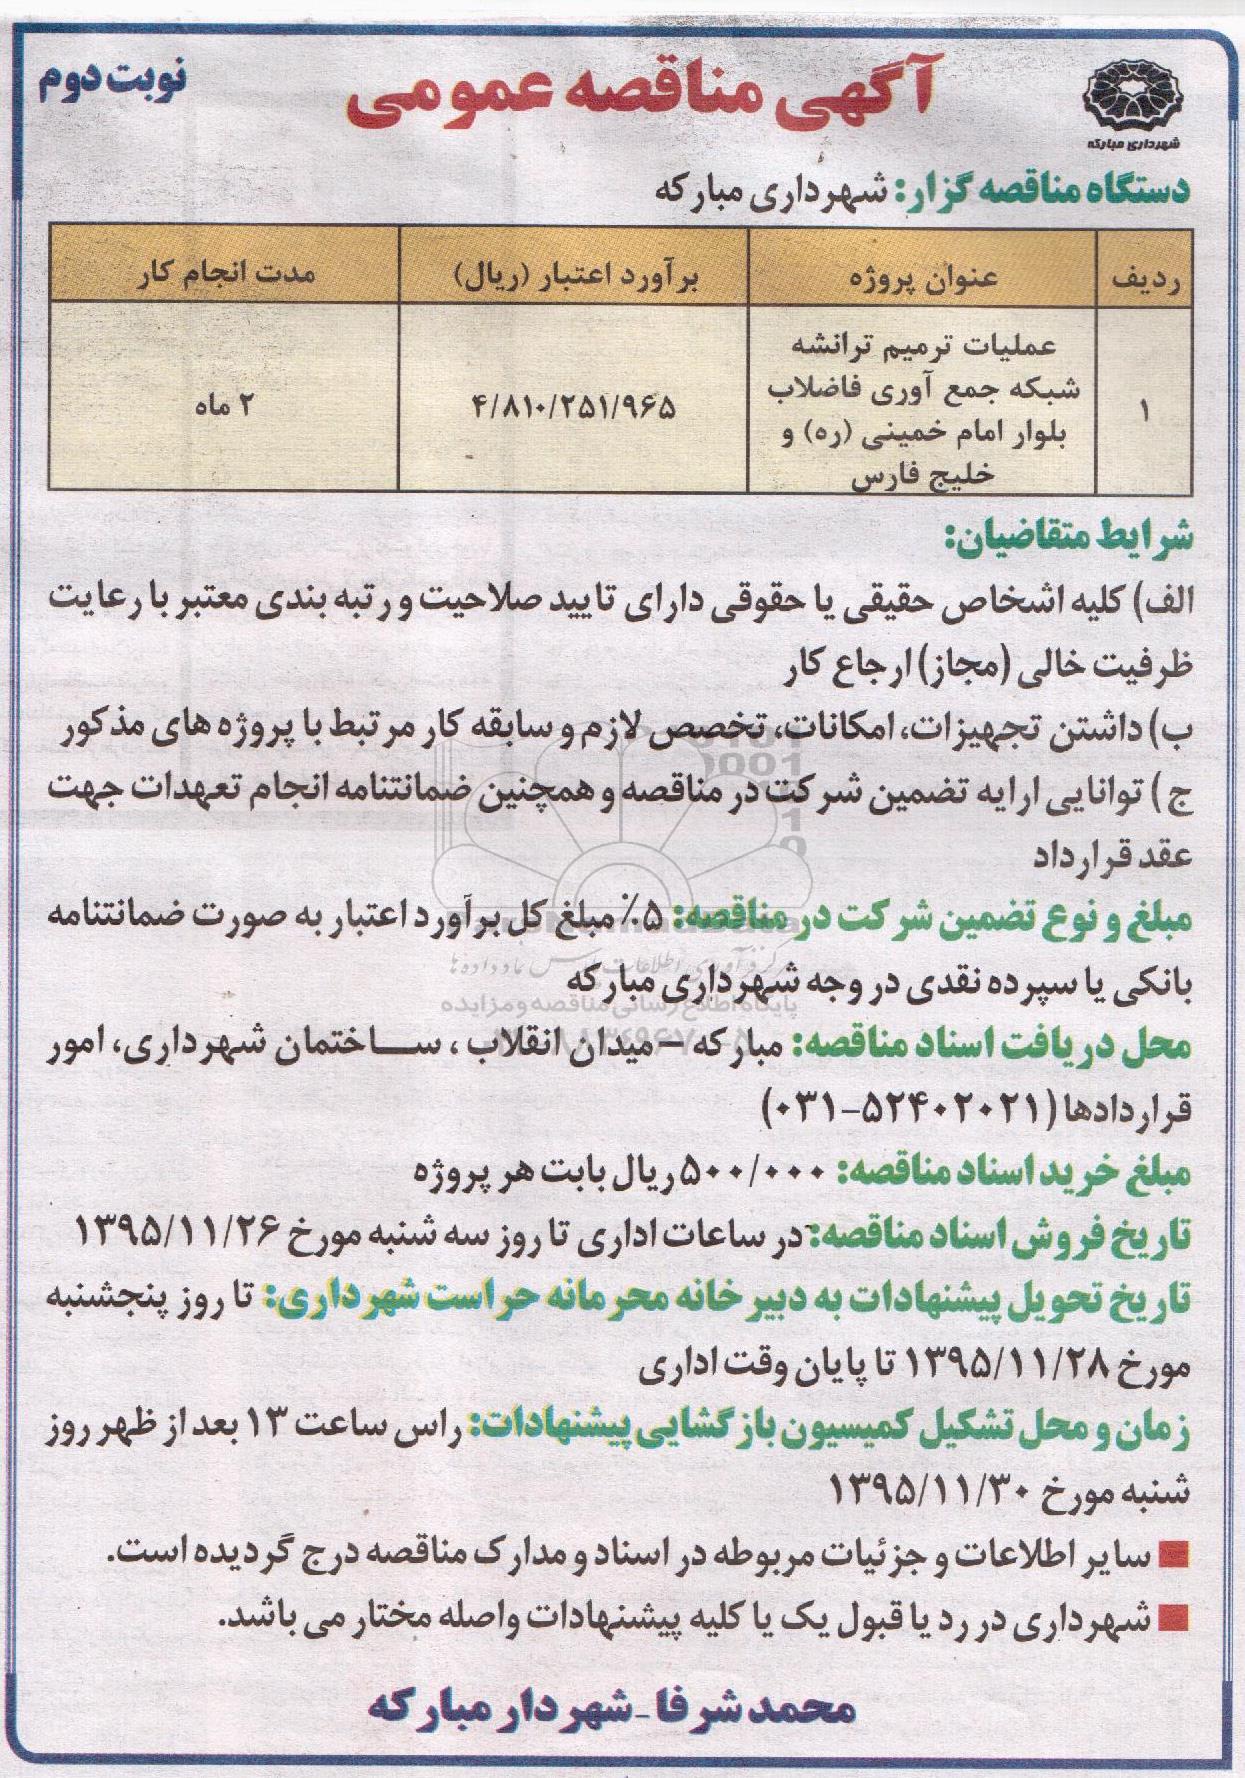 شهرداری مبارکه
آگهی مناقصه عمومی
نوبت دوم
دستگاه مناقصه گزار: شهرداری مبارکه
ردیف عنوان پروژه برآورد اعتبار (ریال) مدت انجام کار
۱ عملیات ترمیم ترانشه شبکه جمع آوری فاضلاب بلوار امام خمینی (ره) و خلیج فارس ۴/۸۱۰/۲۵۱/۹۶۵ ۲ ماه
شرایط متقاضیان:
الف) کلیه اشخاص حقیقی یا حقوقی دارای تایید صلاحیت و رتبه بندی معتبر با رعایت
ظرفیت خالی (مجاز) ارجاع کار
ب) داشتن تجهیزات، امکانات، تخصص لازم و سابقه کار مرتبط با پروژه های مذکور
ج) توانایی ارایه تضمین شرکت در مناقصه و همچنین ضمانتنامه انجام تعهدات جهت
عقد قرارداد
مبلغ و نوع تضمین شرکت در مناقصه: ۵٪ مبلغ کل برآورد اعتبار به صورت ضمانتنامه
بانکی یا سپرده نقدی در وجه شهرداری مبارکه
پایگاه اطلاع رسانی مناقصه و مزایده
محل دریافت اسناد مناقصه: مبارکه – میدان انقلاب، ساختمان شهرداری، امور
قراردادها (۵۲۴۰۲۰۲۱-۰۳۱)
مبلغ خرید اسناد مناقصه: ۵۰۰/۰۰۰ ریال بابت هر پروژه
تاریخ فروش اسناد مناقصه: در ساعات اداری تا روز سه شنبه مورخ ۱۳۹۵/۱۱/۲۶
تاریخ تحویل پیشنهادات به دبیر خانه محرمانه حراست شهرداری: تا روز پنجشنبه
مورخ ۱۳۹۵/۱۱/۲۸ تا پایان وقت اداری
زمان و محل تشکیل کمیسیون بازگشایی پیشنهادات: راس ساعت ۱۳ بعد از ظهر روز
شنبه مورخ ۱۳۹۵/۱۱/۳۰
سایر اطلاعات و جزئیات مربوطه در اسناد و مدارک مناقصه درج گردیده است.
شهرداری در رد یا قبول یک یا کلیه پیشنهادات واصله مختار می باشد.
محمد شرفا - شهردار مبارکه